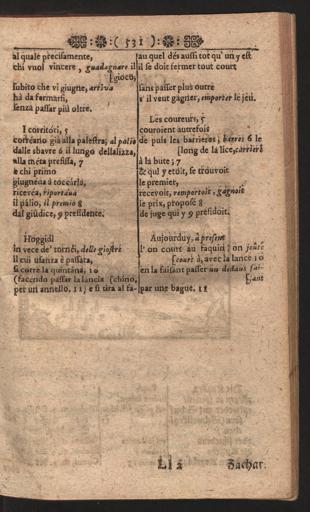 ( 531 )
al quale precisamente,
chi vuol vincere, guadagnare il
[gioco,
subito che vi giugne, arriva
hà da fermarsi,
senza passar più oltre.
I corritori, 5
correano già alla palestra, al palio
dalle sbarre 6 il lungo
alla méta prefissa, 7
e chi primo
giugneua à toccarla,
riceuéa, riportaua
il pálio, il premio 8
dal giúdice, 9 presidente.
Hoggidì
in vece de' tornéi, delle giostre
il cui usanza è passata,
si corre la quintána, 10
(facendo passar la lancia
per un annello, 11) e si tira al fa-
au quel dés aussi tot qu'un y est
il se doit fermer tout court
sans passer plus outre
s'il veut gagner, emporter le jeu.
Les coureurs, 5
couroient autrefois
de puis les barrieres, 6 le
[long de la lice, carriere
à la bute; 7
& qui y etoit, se trouvoit
le premier,
recevoit, remportoit, gagnoit
le prix, proposé 8
de juge qui y 9 presidoit.
Aujourduy, à present
l'on court au faquin; on
à, avec la lance 10
en la faisant passer un dedans
par une bague. 11
Ll 2
Zachar.